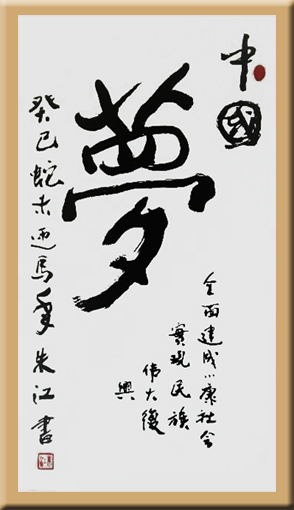 中國
夢
全面建成小康社会
實現民族
伟大復
興
癸巳蛇未迎馬年朱江書